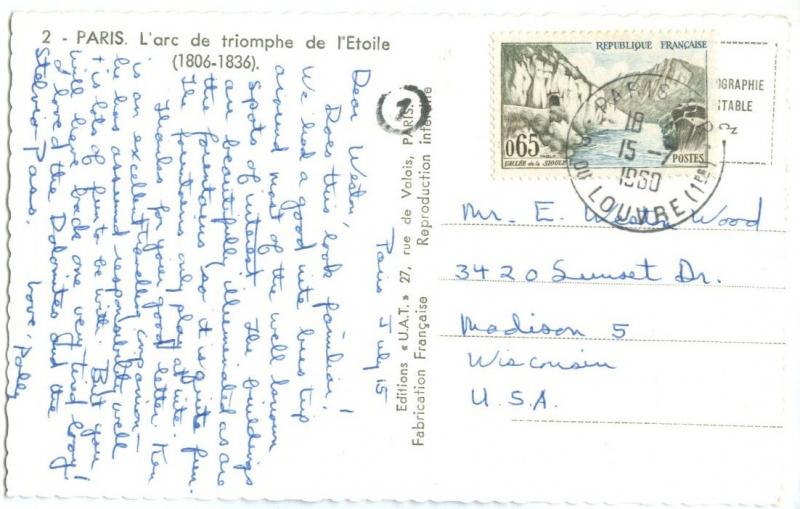 2 - PARIS. L'arc de triomphe de l'Etoile
(1806-1836).
Paris July 15
Dear
Does this look familiar?
We had a good nite bus trip
around most of the well known
spots of interest. The buildings
are beautifully illuminated as are
the fountains so it is quite fun.
The fountains only play at nite.
Thanks for your good letter. Ken
is an excellent traveling companion -
he has assumed responsibility well
+ is lots of fun to be with. But you
will have back one very tired boy!
I loved the Dolomites and the
Stelvio Pass.
Love,
1
Editions « U.A.T. » 27, rue de Valois, PARIS.
Fabrication Française
Reproduction interdite
REPUBLIQUE FRANÇAISE
0,65
VALLÉE de la SIOULE
POSTES
PARIS
18
15 -7
1960
DU LOUVRE (1er)
OGRAPHIE
TABLE
Mr. E. Weston Wood
3420 Sunset Dr.
Madison 5
Wisconsin
U.S.A.